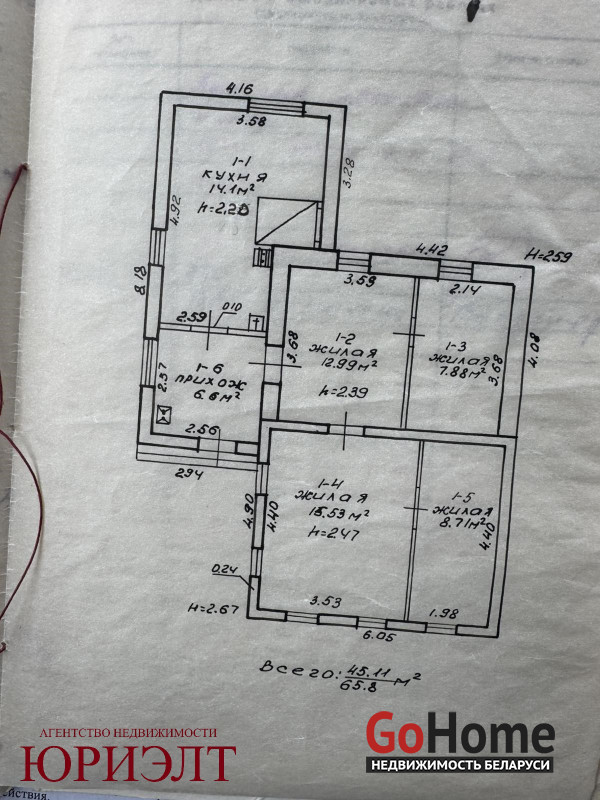 4.16
3.58
1-1
КУХНЯ
14.1м²
h=2,20
4.92
3.28
8.18
4.42
H=259
3,59
2.14
2.59
010
1-2
ЖИЛАЯ
12.99м²
h=2.39
3.68
1-3
ЖИЛАЯ
7.88м²
3.68
4.08
2.57
1-6
ПРИХОЖ
6.6м²
2.56
294
1-4
ЖИЛАЯ
15.53м²
h=2.47
1-5
ЖИЛАЯ
8.71м²
4.40
4.90
4.40
0.24
H=2.67
3.53
1.98
6.05
Всего: 45.11 м²
65.8
АГЕНТСТВО НЕДВИЖИМОСТИ
ЮРИЭЛТ
GoHome
НЕДВИЖИМОСТЬ БЕЛАРУСИ
ействия.